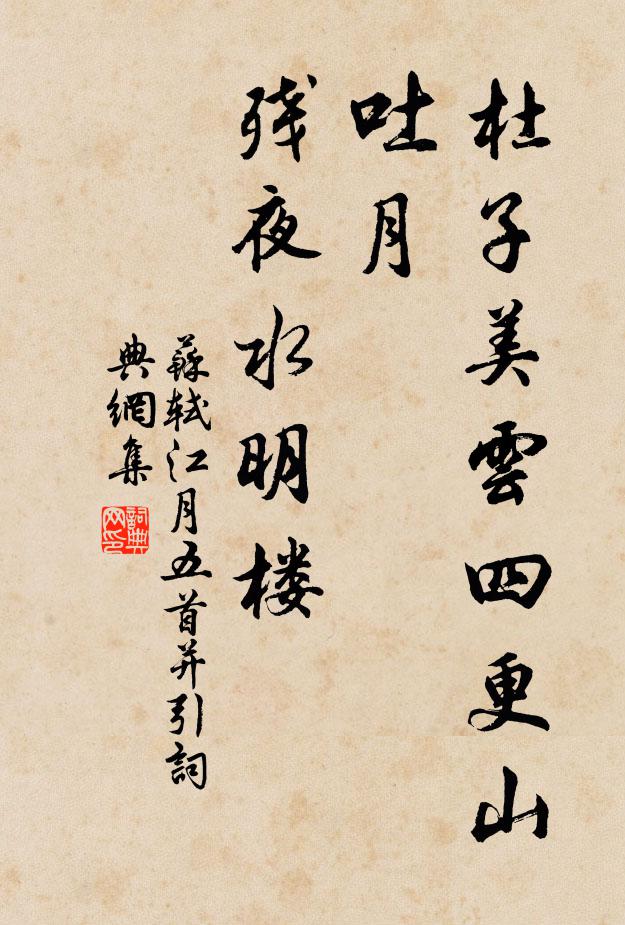 杜子美雲四更山
吐月
残夜水明楼
蘇軾江月五首并引詞
典網集
詞典
网印